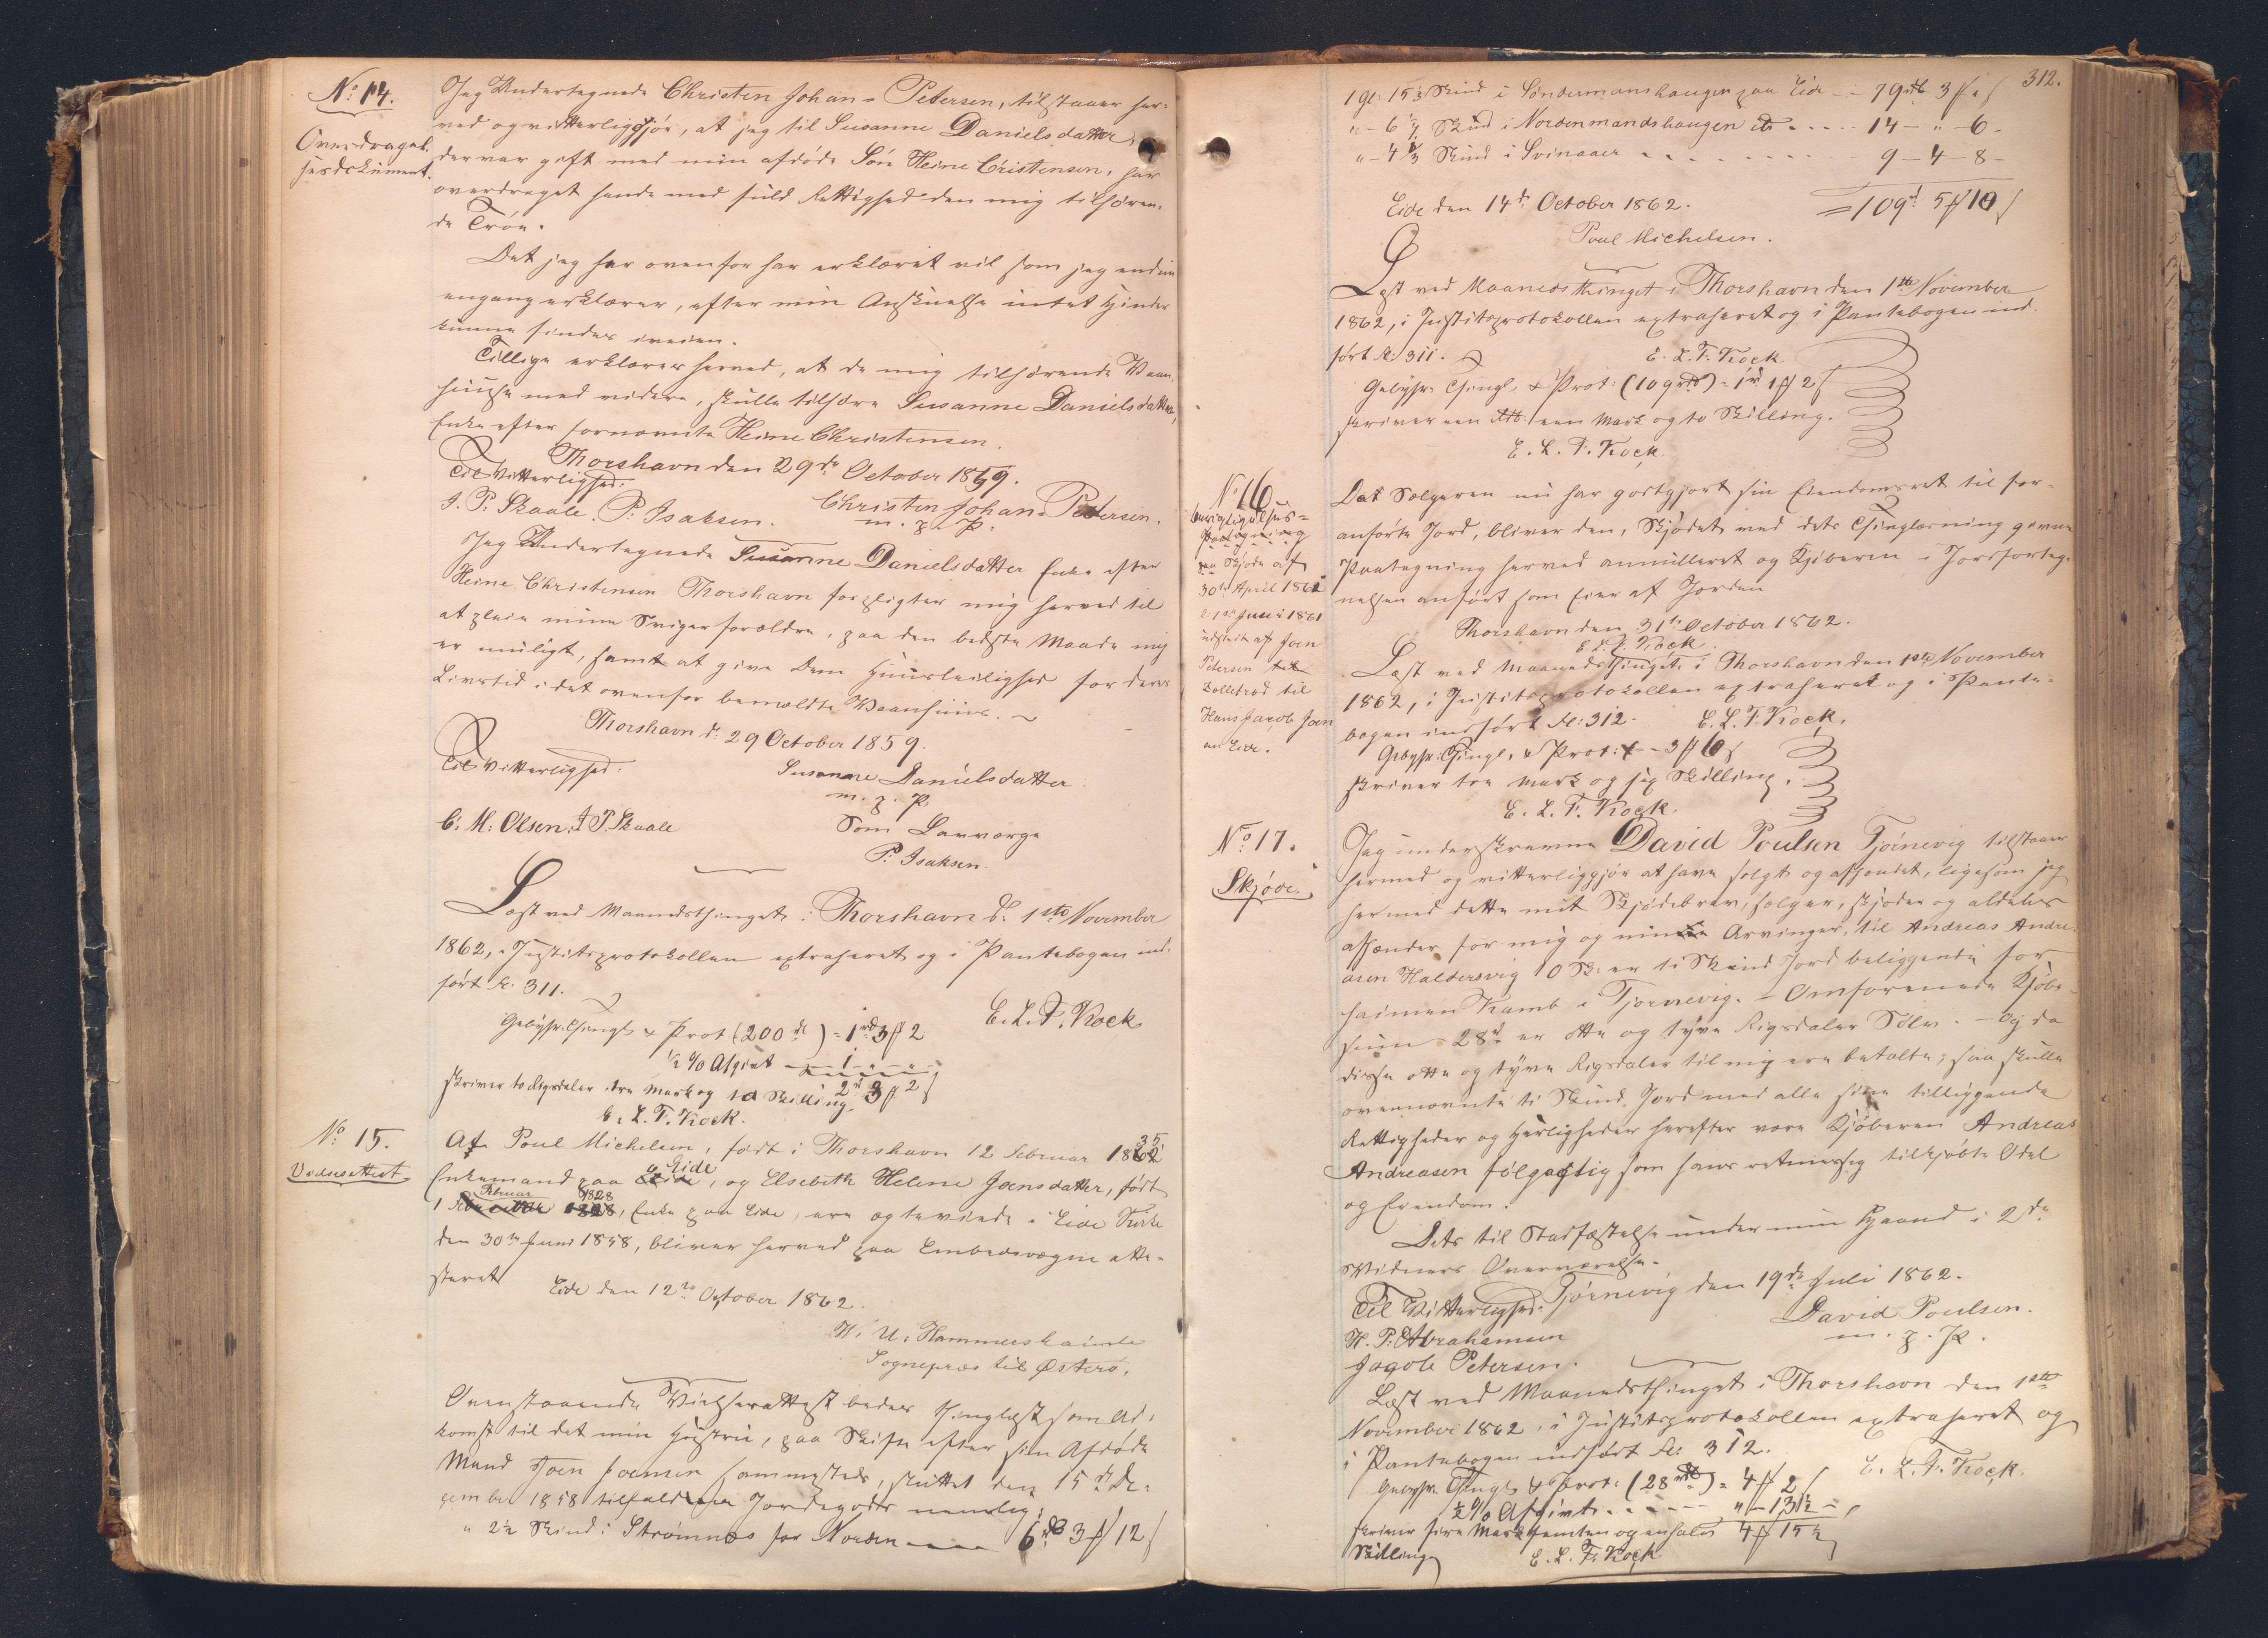 No 14.
Overdragel-
sesdokument.
Jeg Undertegnede Christen Johan = Petersen, tilstaaer her-
ved og vitterliggjør, at jeg til Susanne Danielsdatter,
der var gift med min afdøde Søn Heine Cristensen, har
overdraget hende med fuld Rettighed den mig tilhøren-
de Tróe.
Det jeg her ovenfor har erklæret vil som jeg endnu
engang erklærer, efter min Anskuelse intet Hinder
kunne findes iveien.
Tillige erklærer herved, at de mig tilhørende Vaan-
huuse med videre, skulle tilhøre Susanne Danielsdatter,
Enke efter fornævnte Heine Christensen.
Thorshavn den 29de October 1859.
Til Vitterlighed:
J. P. Skaale. P. Isaksen.
Christen Johan = Petersen.
m. p. P.
Jeg Undertegnede Susanne Danielsdatter Enke efter
Heine Christensen Thorshavn forpligter mig herved til
at pleie mine Svigerforældre, paa den bedste Maade mig
er muligt, samt at give dem Huusleilighed for deres
Livstid i det ovenfor bemældte Vaanhuus.
Thorshavn d: 29 October 1859.
Til Vitterlighed:
Susanne Danielsdatter
m. p. P.
C. M: Olsen, J. P. Skaale
Som Lavværge
P. Isaksen.
Læst ved Maanedsthinget i Thorshavn d: 1ste November
1862, i Justitsprotokollen extraheret og i Pantebogen ind-
ført fol. 311.
E. L. F. Kock
Gebyhr: Thingl & Prot (200 rd) = 1rd 3 ℳ 2
½ % Afgivt — 1 " "
skriver to Rigsdaler tre Mark og to Skilling. 2rd 3 ℳ 2 ß
E. L. F. Kock.
No 15.
Vielsesattest
At Poul Michelsen, født i Thorshavn 12 Februar 1835
Enkemand paa Eide, og Elsebeth Helene Joensdatter, født
1 Februar 1828, Enke paa Eide, ere ægteviede i Eide Kirke
den 30te Juni 1858, bliver herved paa Embedsvegne atte-
steret
Eide den 12te October 1862.
V. U. Hammershaimb
Sognepræst til Østerø.
Ovenstaaende Vielsesattest bedes thinglæst som Ad-
komst til det min Hustrue, paa Skifte efter sin Afdøde
Mand Joen Joensen sammesteds, sluttet den 15de De-
cember 1858 tilfaldne Jordegods nemlig:
" 2½ Skind i Strømnæs for Norden — 6rd 3 ℳ 12 ß
312.
1 gl: 15⅓ Skind i Søndermanshaugen paa Eide — 79 rd 3 ℳ " ß
" - 6 Skind i Nordenmandshaugen do ..... 14 — " — 6 -
" - 4⅓ Skind i Svinaaer ........ 9 — 4 — 8 -
= 109rd 5 ℳ 10 ß
Eide den 14de October 1862.
Poul Michelsen.
Læst ved Maanedsthinget i Thorshavn den 1ste November
1862, i Justitsprotokollen extraheret og i Pantebogen ind-
ført fol: 311.
E. L. F. Kock
Gebyhr: Thingl. & Prot: (109 rd) = 1rd 1 ℳ 2 ß
skriver een Rdl. een Mark og to Skilling.
E. L. F. Kock.
No 16
Berigtigelses-
Paategning
paa Skjøde af
30te April 1861
l. 1ste Juni 1861
udstedt af Joen
Petersen
Zolletrød til
Hans Jacob Joen-
sen Eide.
Da Sælgeren nu har godtgjort sin Eiendomsret til for-
anførte Jord, bliver den, Skjødet ved dets Thinglæsning givne
Paategning herved annulleret og Kjøberen i Jordforteg-
nelsen anført som Eier af Jorden
Thorshavn den 31te October 1862.
E. L. F. Kock.
Læst ved Maanedsthinget i Thorshavn den 1ste November
1862, i Justitsprotokollen extraheret og i Pante-
bogen indført fol: 312.
E. L. F. Kock.
Gebyhr: Thingl. & Prot: — 3 ℳ 6 ß
skriver tre Mark og sex Skilling.
E. L. F. Kock.
No 17.
Skjøde.
Jeg underskrevne David Poulsen Tjørnevig tilstaaer
hermed og vitterliggjør at have solgt og afhændet, ligesom jeg
hermed dette mit Skjødebrev, sælger, skjøder og aldeles
afhænder for mig og mine Arvinger, til Andreas Andre-
asen Haldersvig 10 Sk: er ti Skind Jord beliggende for
haimen Kamb i Tjørnevig. – Omforenede Kjøbe-
sum 28rd er otte og tyve Rigsdaler Sølv. – Og da
disse otte og tyve Rigsdaler til mig ere betalte; saa skulle
ovennævnte ti Skind Jord med alle sine tilliggende
Rettigheder og Herligheder herefter være Kjøberen Andreas
Andreasen følgagtig som hans retmæssig tilkjøbte Odel
og Eiendom.
Dets til Stadfæstelse under min Haand i 2de
Vidners Overværelse.
Tjørnevig den 19de Juli 1862.
Til Vitterlighed:
David Poulsen.
m. p. P.
H. P. Abrahamsen
Jagob Petersen.
Læst ved Maanedsthinget i Thorshavn den 1ste
November 1862, i Justitsprotokollen extraheret og
i Pantebogen indført fol: 312.
E. L. F. Kock.
Gebyhr. Thingl & Prot: (28 rd) = 4 ℳ 2 ß
½ % Afgivt ..... " — 13½ -
skriver fire Mark femten og en halv 4 ℳ 15½ ß
Skilling
E. L. F. Kock